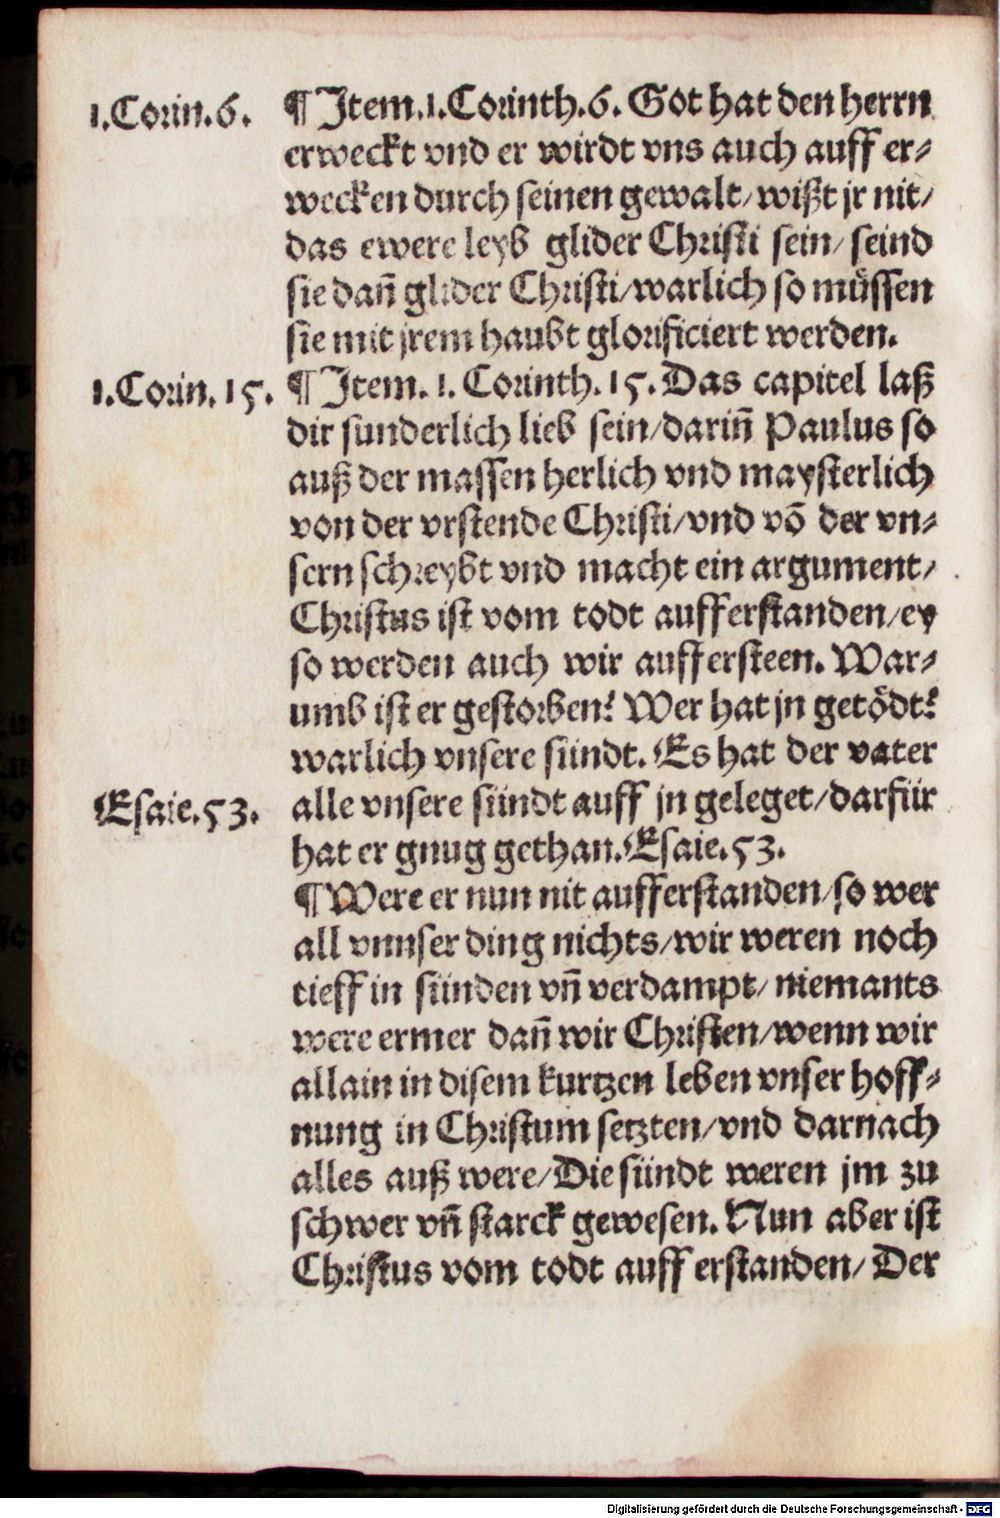 1.Corin.6. ¶ Item.1.Corinth.6. Got hat den herrn
erweckt vnd er wirdt vns auch auff er⸗
wecken durch seinen gewalt/wißt jr nit/
das ewere leyb glider Christi sein/ seind
sie dañ glider Christi/warlich so müssen
sie mit jrem haubt glorificiert werden.
1.Corin.15. ¶ Item. 1. Corinth.15. Das capitel laß
dir sunderlich lieb sein/dariñ Paulus so
auß der massen herlich vnd maysterlich
von der vrstende Christi/vnd võ der vn⸗
sern schreybt vnd macht ein argument/
Christus ist vom todt aufferstanden/ey
so werden auch wir auffersteen. War⸗
umb ist er gestorben? Wer hat jn getödt?
warlich vnsere sündt. Es hat der vater
Esaie.53. alle vnsere sündt auff jn geleget/darfür
hat er gnug gethan. Esaie.53.
¶ Were er nun nit aufferstanden/so wer
all vnnser ding nichts/wir weren noch
tieff in sünden vñ verdampt/ niemants
were ermer dañ wir Christen/wenn wir
allain in disem kurtzen leben vnser hoff⸗
nung in Christum setzten/vnd darnach
alles auß were/Die sündt weren jm zu
schwer vñ starck gewesen. Nun aber ist
Christus vom todt auff erstanden/ Der
Digitalisierung gefördert durch die Deutsche Forschungsgemeinschaft - DFG